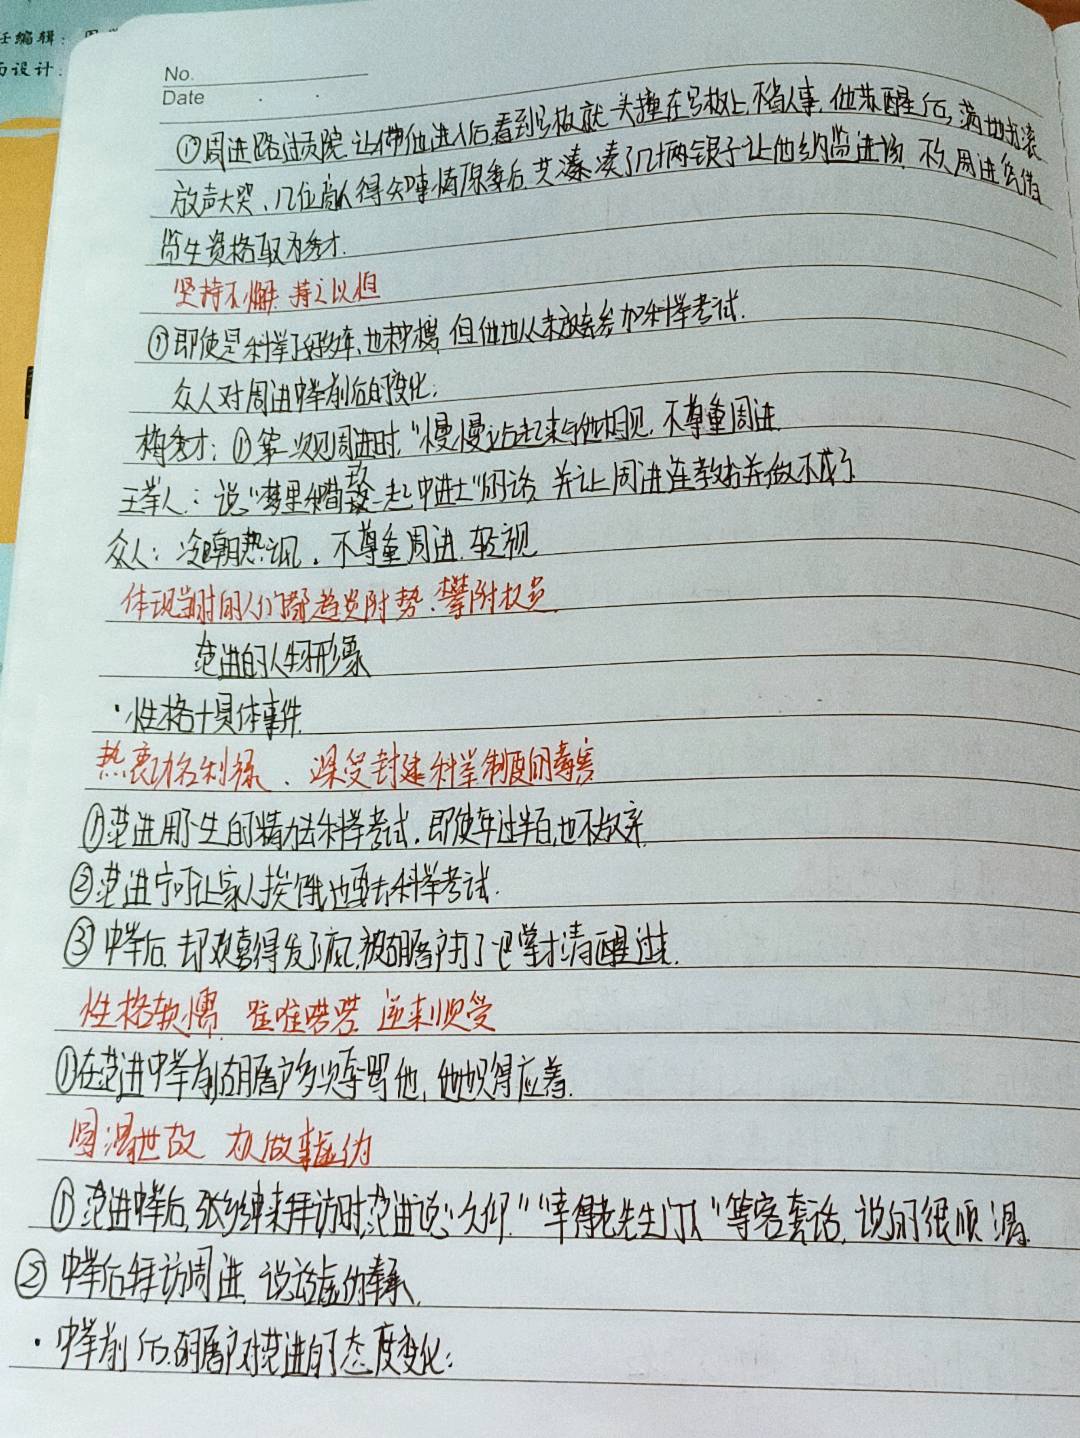 任编辑：
面设计：
No.
Date
①周进路过贡院,让人带他进入后,看到号板就一头撞在号板上,不省人事,他苏醒后,满地打滚
放声大哭、几位商人得知事情原委后,凑了几两银子让他纳监进场,不久周进凭借
监生资格取为秀才.
坚持不懈 持之以恒
①即使是科举了好多年、也未中榜,但他也从未放弃参加科举考试.
众人对周进中举前后的变化:
梅秀才: ①第一次见周进时,"慢慢站起来与他相见.不尊重周进.
王举人: 说"梦里和荀玫一起中进士"的话,并让周进连教书并做不成了
众人: 冷嘲热讽.不尊重周进.轻视
体现当时的人们都趋炎附势、攀附权贵.
范进的人物形象
·性格+具体事件.
热衷功名利禄、深受封建科举制度的毒害
①范进用了一生的精力去科举考试.即使年过半百,也不放弃.
②范进宁可让家人挨饿也要去科举考试.
③中举后.却欢喜得发了疯,被胡屠户打了一巴掌才清醒过来.
性格软懦 唯唯诺诺 逆来顺受
①在范进中举前胡屠户多次辱骂他,他只得应着.
圆滑世故 虚伪
①范进中举后,张乡绅来拜访时,范进说"久仰""幸得老先生门下"等客套话,说的很顺溜.
②中举后拜访周进,说话虚伪奉承.
·中举前后.胡屠户对范进的态度变化: